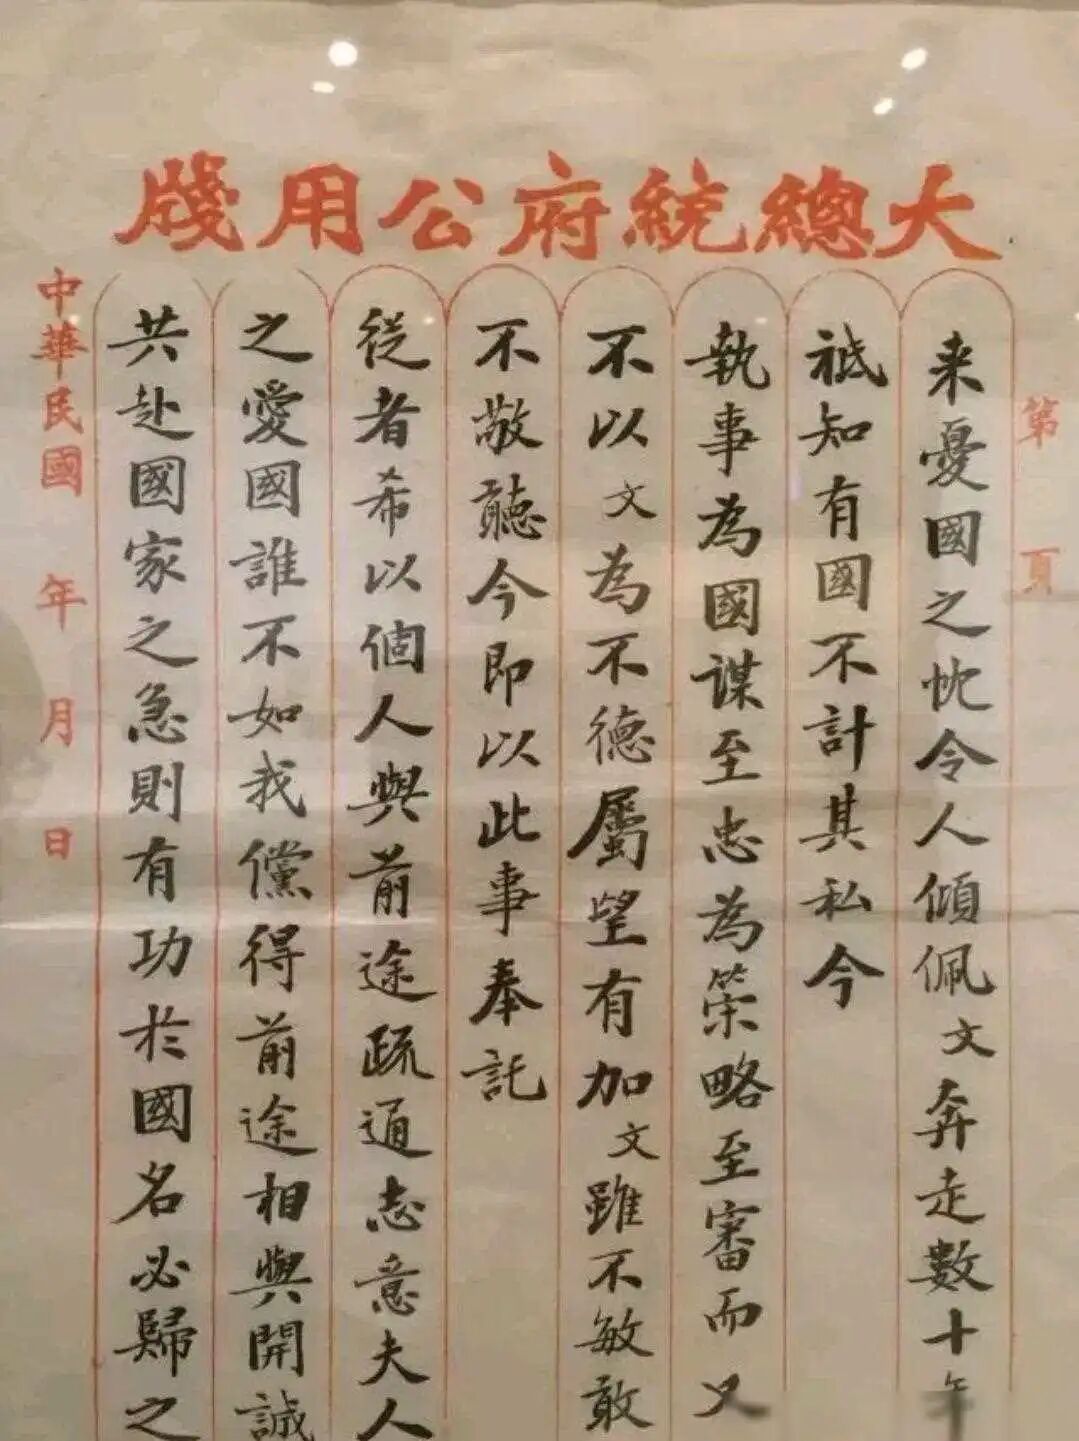 大總統府公用牋
第 頁
来憂國之忱令人傾佩文奔走數十年
祗知有國不計其私今
執事為國謀至忠為策略至審而又
不以文為不德屬望有加文雖不敏敢
不敬聽今即以此事奉託
從者希以個人與前途疏通志意夫人
之愛國誰不如我儻得前途相與開誠
共赴國家之急則有功於國名必歸之
中華民國 年 月 日